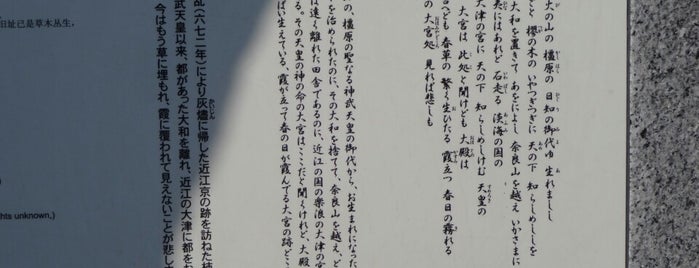 火の山の 橿原の 日知の御代ゆ 生れましし
櫻の木の いやつぎつぎに 天の下 知らしめししを
大和を置きて あをによし 奈良山を越え いかさまに
夷にはあれど 石走る 淡海の国の
大津の宮に 天の下 知らしめしけむ 天皇の
大宮は 此処と聞けども 大殿は
いへども 春草の 繁く生ひたる 霞立つ 春日の霧れる
の 大宮処 見れば悲しも
の、橿原の聖なる神武天皇の御代から、お生まれになった
を治められたのに、その大和を捨てて、奈良山を越え、ど
は遠く離れた田舎であるのに、近江の国の楽浪の大津の宮
る。その天皇の神の命の大宮はここだと聞くけれど、大殿
ばい生えている。霞が立って春の日が霞んでる大宮の跡どこ
乱(六七二年)により灰燼に帰した近江京の跡を訪ねた柿
武天皇以来、都があった大和を離れ、近江の大津に都をお
今はもう草に埋もれ、霞に覆われて見えないことが悲し
旧址已是草木丛生，
hts unknown,)